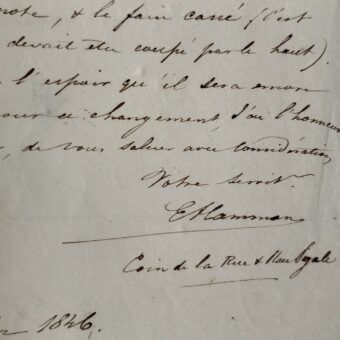 note, & le faire carré (c'est
devait être coupé par le haut).
l'espoir qu'il sera encore
pour ce changement J'ai l'honneur
, de vous saluer avec considération
Votre servitr.
EHamman
Coin de la Rue & Place Pigale
1846.